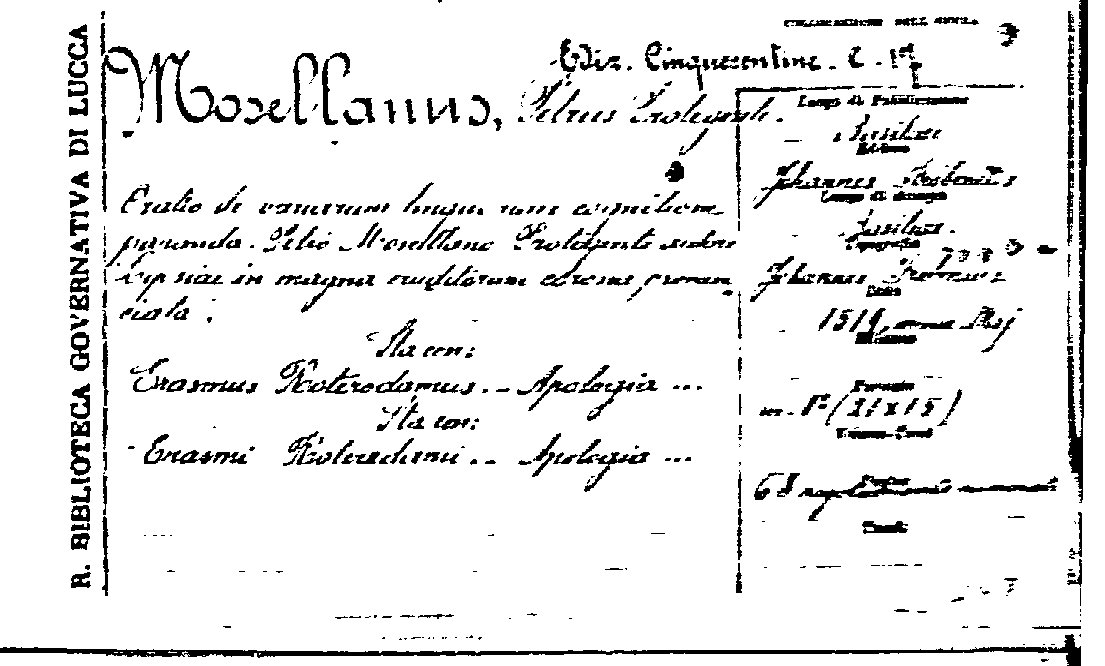 R. BIBLIOTECA GOVERNATIVA DI LUCCA
COLLOCAZIONE DELL' OPERA
Ediz. Cinquecentine. C. 17
Mosellanus, Petrus Protegensis.
Oratio de variarum linguarum cognitione
paranda. Petro Mosellano Protegente autore
Lipsiae in magna eruditorum corona pronun
ciata.
Sta con:
Erasmus Roterodamus. - Apologia ...
Sta con:
Erasmi Roterodami. - Apologia ...
Luogo di Pubblicazione
Basileae
Editore
Johannes Frobenius
Luogo di stampa
Basileae.
Tipografia
Johannes Frobenius
Data
1519, Maj
Formato
in-8° (21x15)
Pagine
68